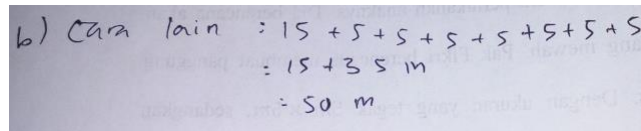 b) Cara lain : 15 + 5 + 5 + 5 + 5 + 5 + 5 + 5
: 15 + 35 m
= 50 m